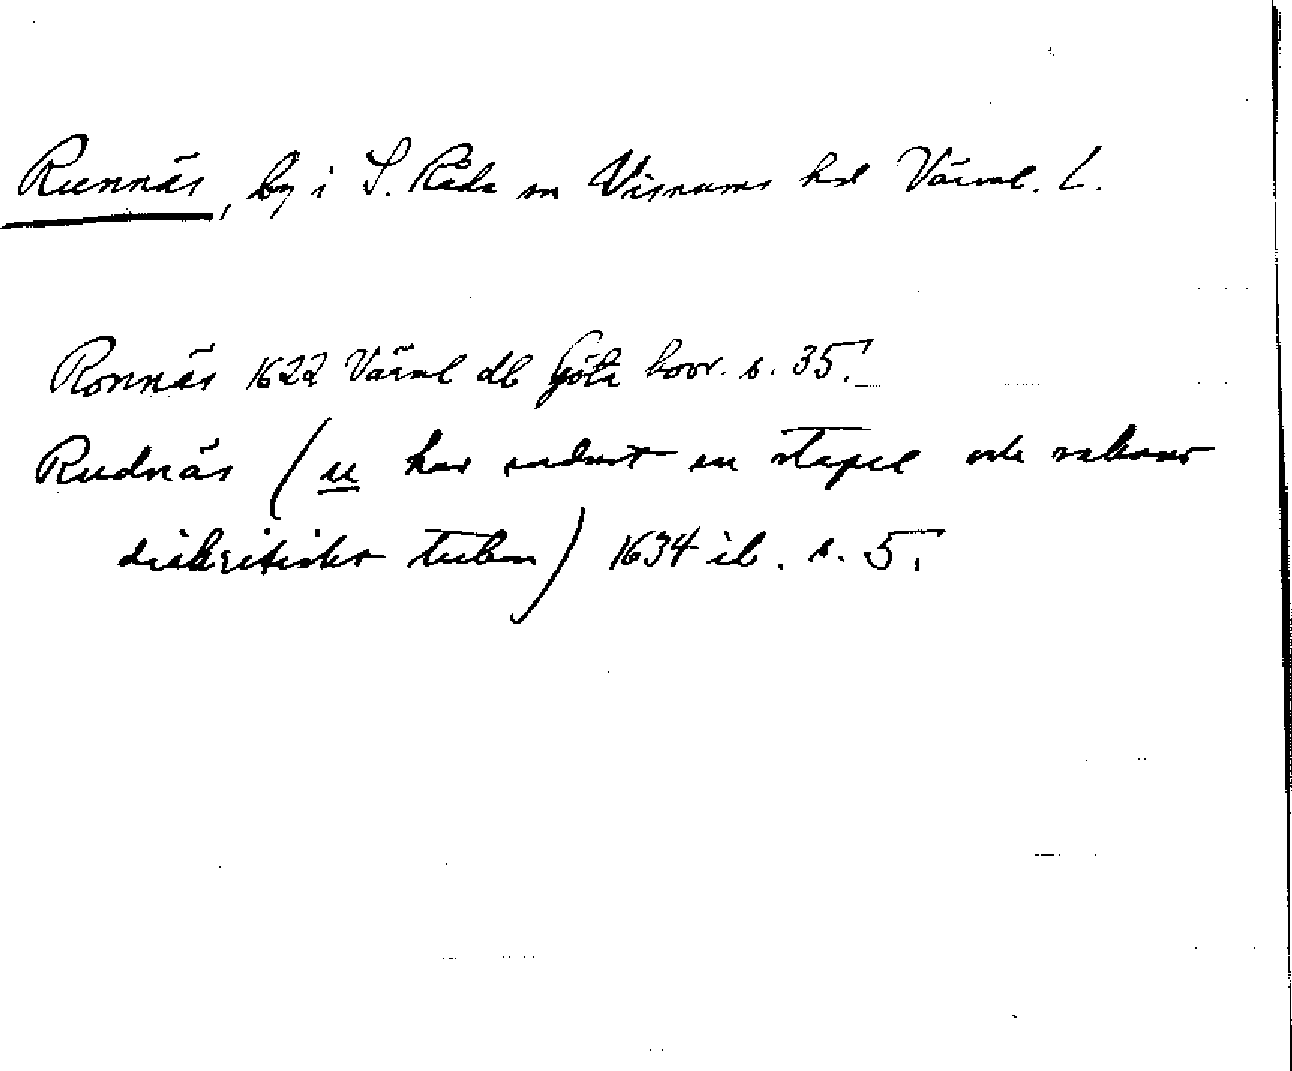 Runnäs, by i S. Råda sn Visnums hd Värml. L.
Ronnäs 1622 Värml db Göta hovr. s. 35.
Rudnäs (u har endast en stapel och saknar
diakritiska tecken) 1634 ib. s. 5.